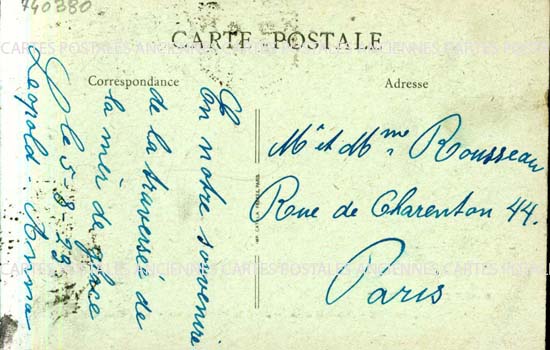 740380
CARTE POSTALE
CARTES POSTALES ANCIENNES CARTES POSTALES ANCIENNES CARTES POSTALES
Correspondance
Adresse
En notre souvenir
de la traversée de
la mèr de glace
le 5-8-29
Léopold-Anna
Mr et Mme Rousseau
Rue de Charenton 44.
Paris
CARTES POSTALES ANCIENNES CARTES POSTALES ANCIENNES CARTES POSTALES